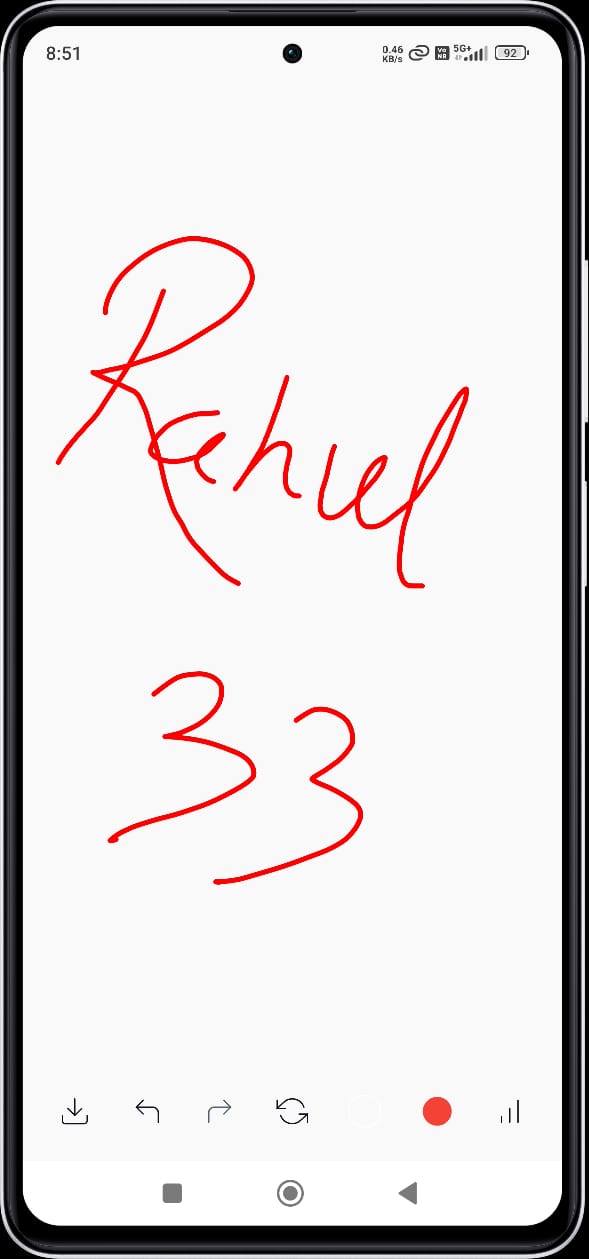 8:51 0.46 KB/s Vo NR 5G+ 92
Rahul
33